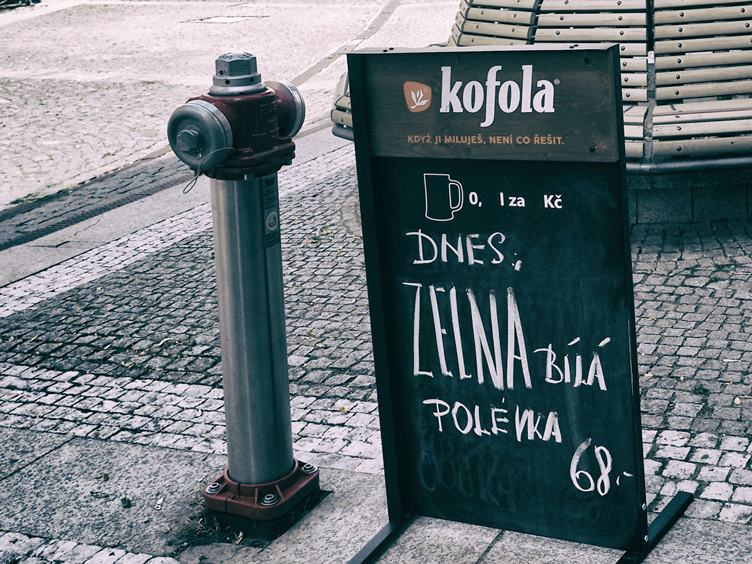 kofola
KDYŽ JI MILUJEŠ, NENÍ CO ŘEŠIT.
0, l za Kč
DNES:
ZELNA BÍLÁ
POLÉVKA
68.-